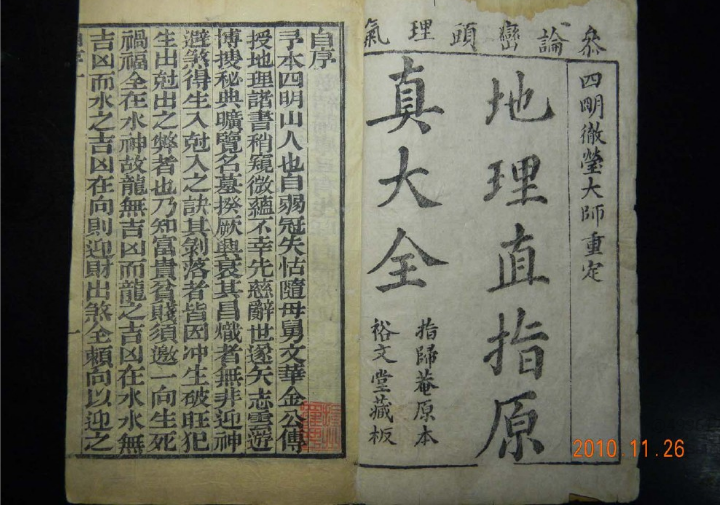 叅論巒頭理氣
四明徹瑩大師重定
地理直指原
真大全
指歸菴原本
裕文堂藏板
自序
予本四明山人也自弱冠失怙隨母舅文華金公傳
授地理諸書稍窺微蘊不幸先慈辭世遂矢志雲遊
博搜秘典曠覽名墓揆厥興衰其昌熾者無非迎神
避煞得生入尅入之訣其剝落者皆因冲生破旺犯
生出尅出之弊者也乃知富貴貧賤須邀一向生死
禍福全在水神故龍無吉凶而龍之吉凶在水水無
吉凶而水之吉凶在向則迎財出煞全賴向以迎之
2010.11.26